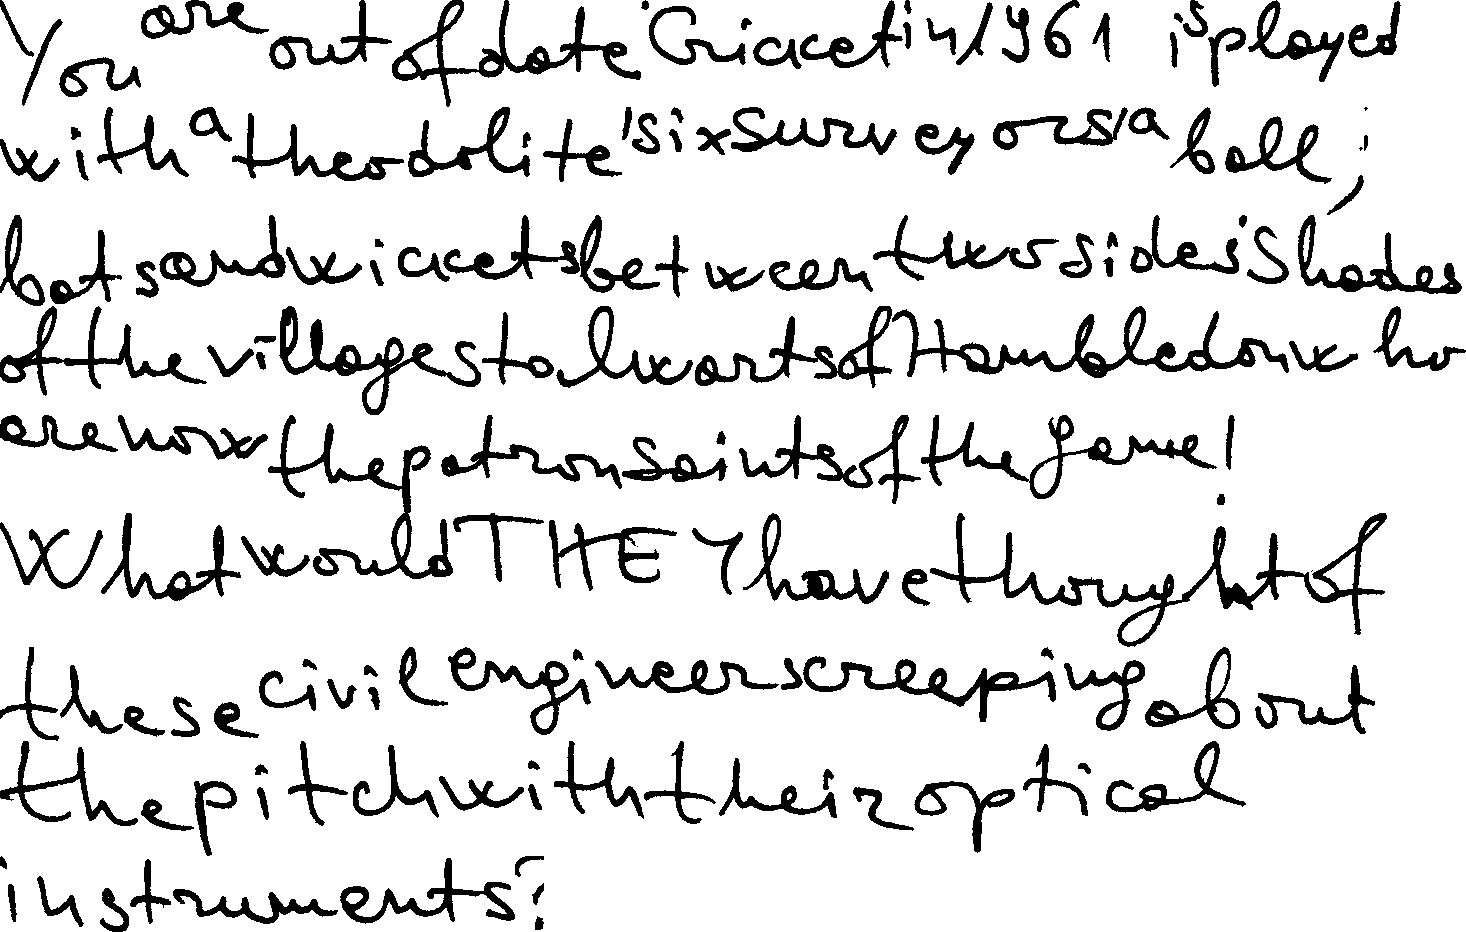 You are out of date. Cricket in 1961 is played
with a theodolite, six surveyors, a ball,
bats and wickets between two sides. Shades
of the village stalwarts of Hambledon who
are now the patron saints of the game!
What would THEY have thought of
these civil engineers creeping about
the pitch with their optical
instruments?